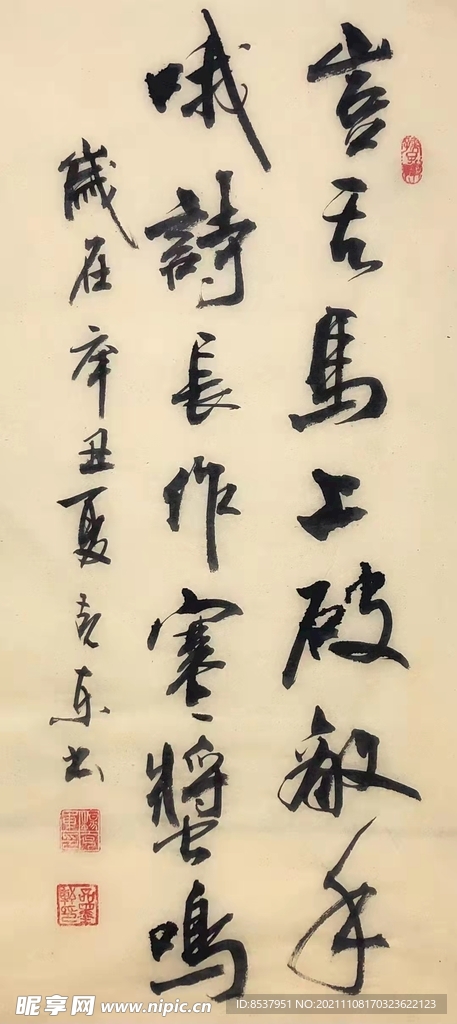 豈馬上破敵手
哦詩長作寒螿鳴
歲在辛丑夏克东书
昵享网 www.nipic.cn
ID:8537951 NO:20211108170323622123